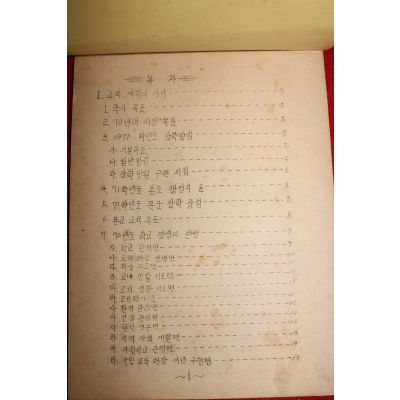 목 차
I. 교육 계획의 기저 3
1. 국가 목표 3
2. 70년대 시정 목표 5
3. 1971 학년도 장학방침 5
가. 기본목표 5
나. 일반방침 6
다. 장학방침 구현 지침 6
4. 71학년도 본도 행정지표 8
5. 71학년도 본군 장학 중점 8
6. 본교 교육 목표 8
7. 70년도 학교 경영의 반성 7
가. 학교 관리면 7
나. 교육 과정 운영면
다. 학습 지도면
라. 교내 생활 지도면
마. 교외 생활 지도면
바. 교육평가
사. 환경 관리면
아. 건강 관리면
자. 현직 연수면
차. 지역 사회 개발면
카. 사무관리 운영면
타. 국민 교육 헌장 이념 구현면 13
~1~